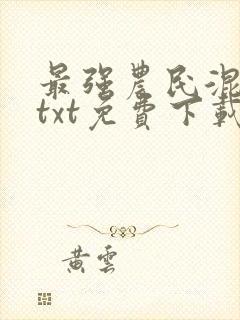 最强農民混
txt免費下載
黄雲